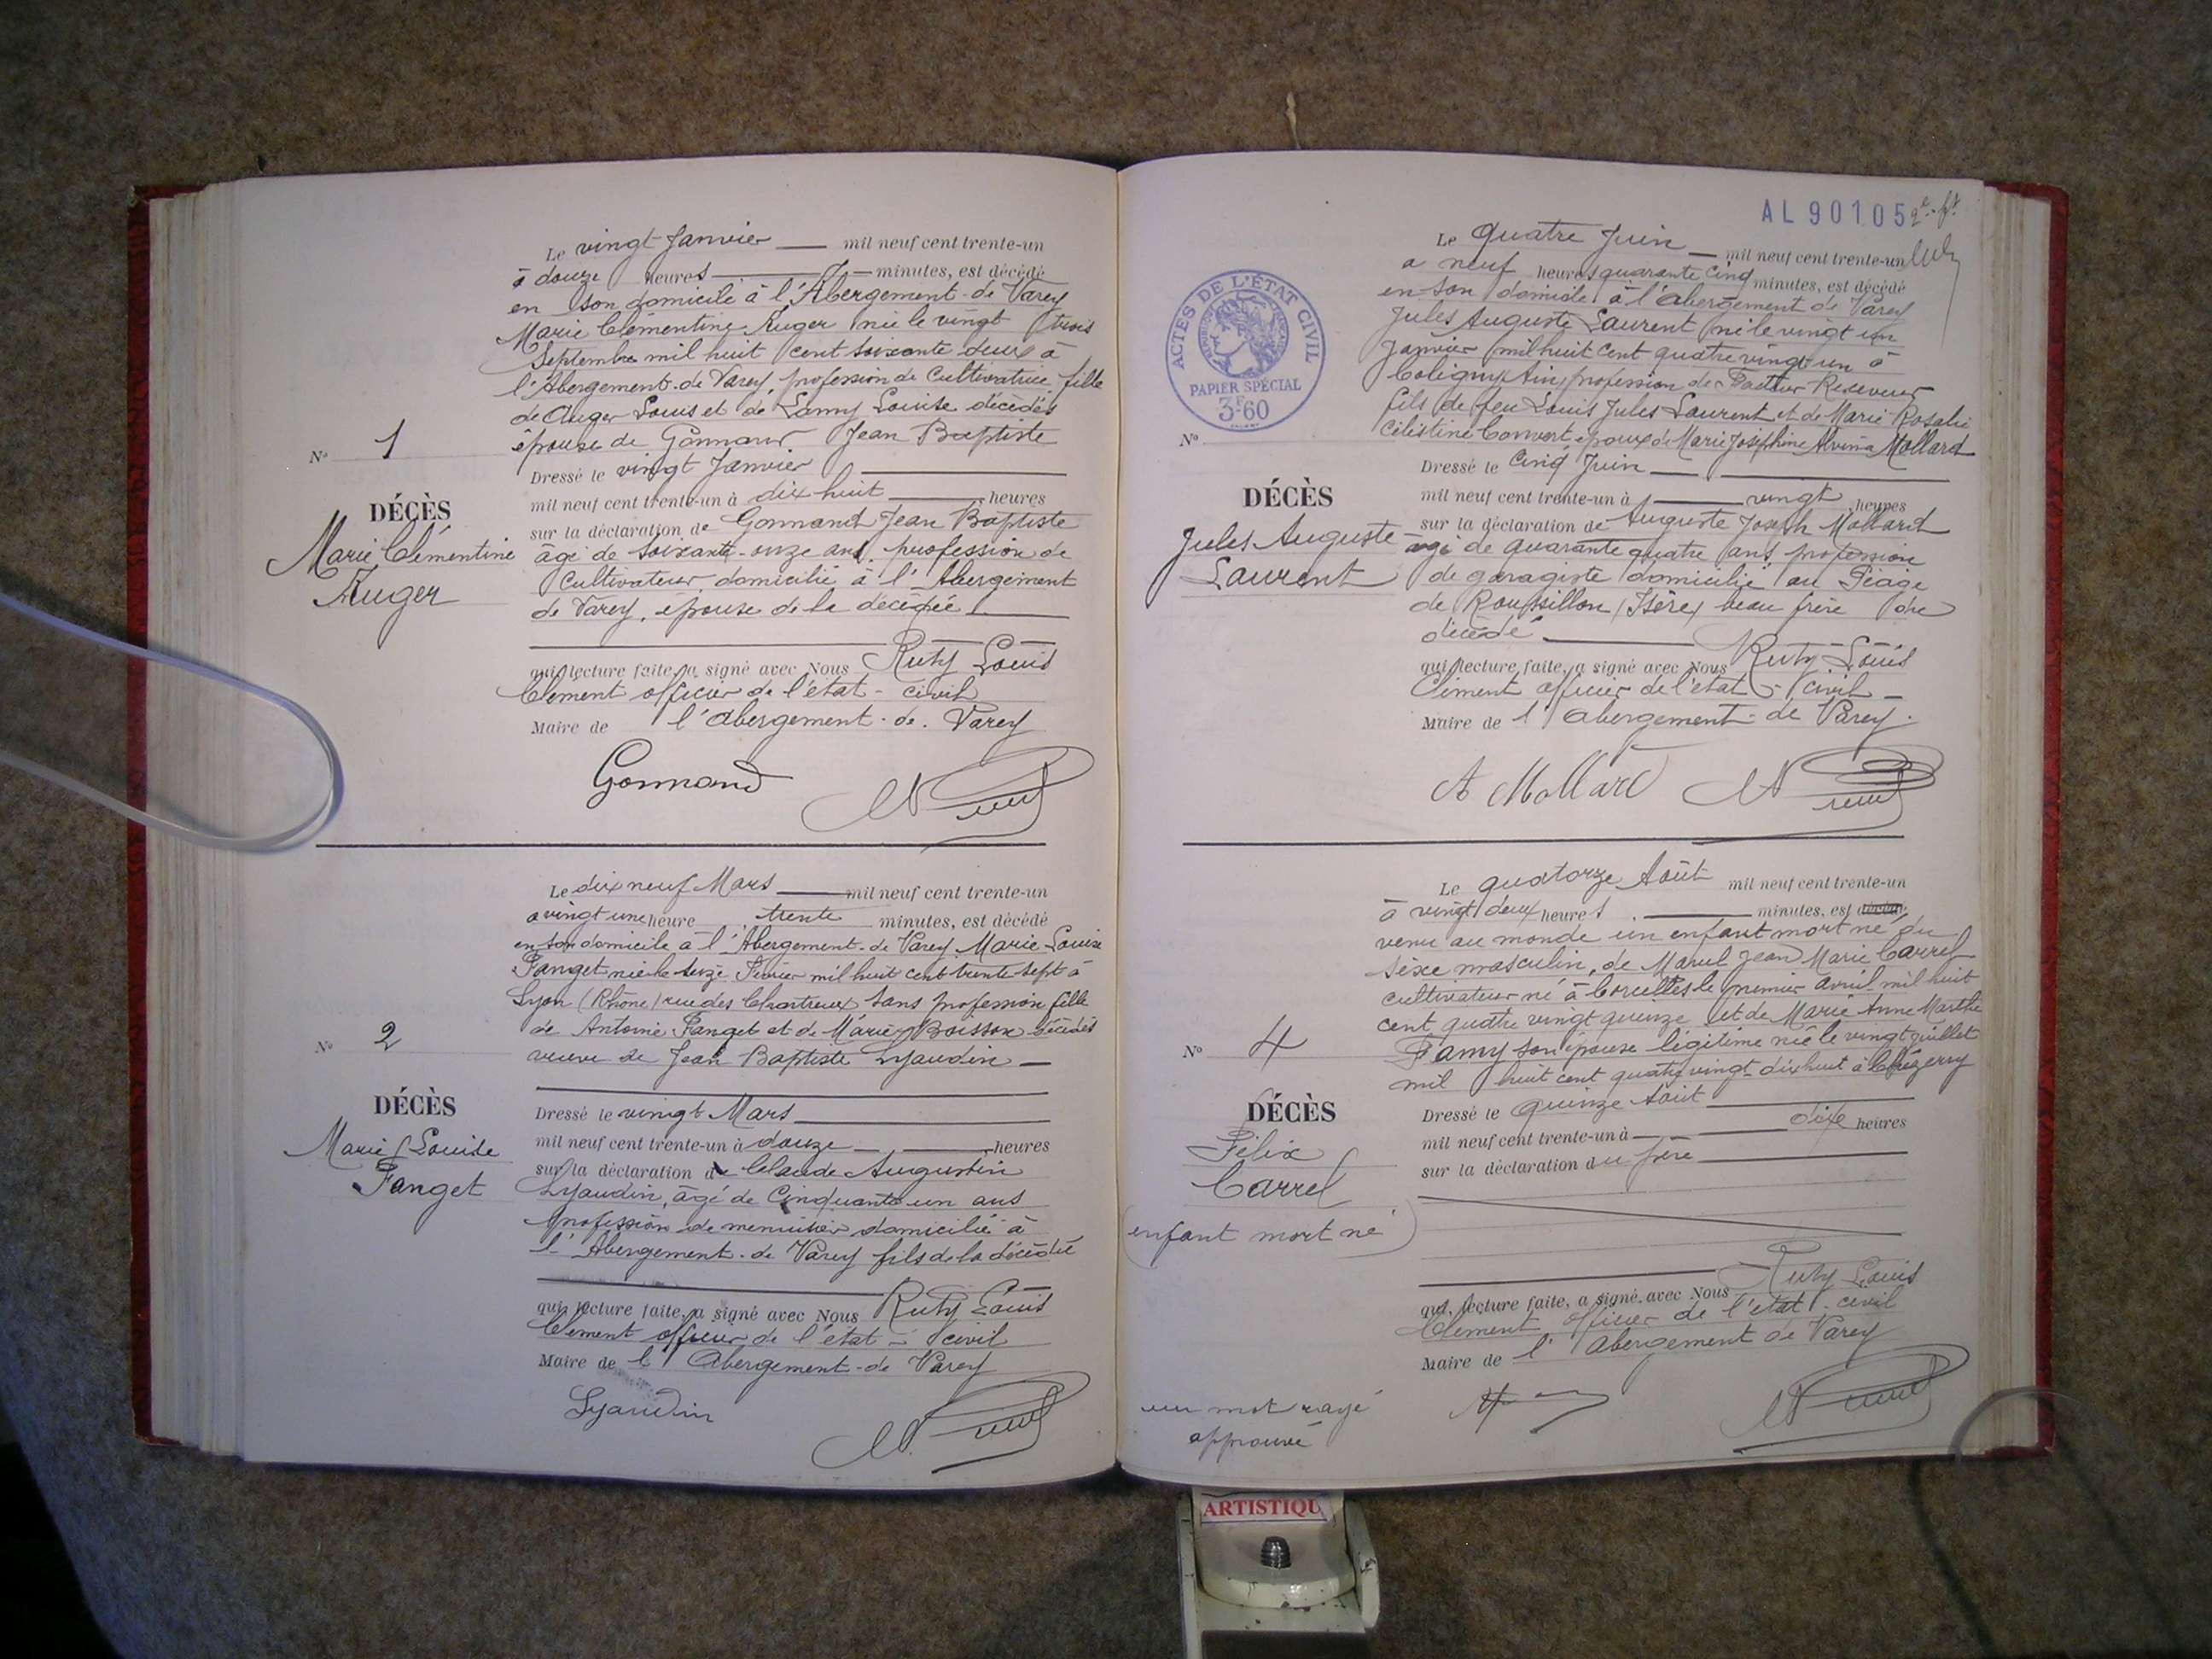 Le vingt Janvier mil neuf cent trente-un
à douze heures minutes, est décédé
en son domicile à l'Abergement-de Varey
Marie Clémentine Auger née le vingt trois
Septembre mil huit cent soixante deux à
l'Abergement-de Varey, profession de Cultivatrice fille
de Auger Louis et de Lamy Louise décédés
épouse de Gonnand Jean Baptiste
N° 1
Dressé le vingt Janvier
mil neuf cent trente-un à dix huit heures
DÉCÈS
sur la déclaration de Gonnand Jean Baptiste
Marie Clémentine
âgé de soixante-onze ans, profession de
Auger
Cultivateur domicilié à l'Abergement
de Varey, épouse de la décédée
qui, lecture faite, a signé avec Nous Ruty Louis
Clément officier de l'état-civil
Maire de l'Abergement-de-Varey
Gonnand
Le dix neuf Mars mil neuf cent trente-un
à vingt une heure trente minutes, est décédé
en son domicile à l'Abergement-de Varey Marie Louise
Fanget née le seize Février mil huit cent trente sept à
Lyon (Rhône) rue des Chartreux sans profession fille
de Antoine Fanget et de Marie Boisson décédés
N° 2
veuve de Jean Baptiste Lyaudin
DÉCÈS
Dressé le vingt Mars
Marie Louise
mil neuf cent trente-un à douze heures
Fanget
sur la déclaration de Claude Augustin
Lyaudin, âgé de Cinquante un ans
profession de menuisier domicilié à
l'Abergement-de Varey fils de la décédée
qui, lecture faite, a signé avec Nous Ruty Louis
Clément officier de l'état-civil
Maire de l'Abergement-de Varey
Lyaudin
AL 90105
Le Quatre Juin mil neuf cent trente-un
à neuf heures quarante cinq minutes, est décédé
en son domicile à l'Abergement de Varey
Jules Auguste Laurent né le vingt un
Janvier mil huit cent quatre vingt un à
Coligny Ain, profession de Facteur Receveur
fils de feu Louis Jules Laurent et de Marie Rosalie
Célestine Convert époux de Marie Joséphine Alvina Mollard
ACTES DE L'ÉTAT CIVIL
PAPIER SPÉCIAL
3F60
N°
Dressé le Cinq Juin
DÉCÈS
mil neuf cent trente-un à vingt heures
Jules Auguste
sur la déclaration de Auguste Joseph Mollard
Laurent
âgé de quarante quatre ans profession
de garagiste domicilié au Péage
de Roussillon (Isère) beau frère du
décédé
qui, lecture faite, a signé avec Nous Ruty Louis
Clément officier de l'état-civil
Maire de l'Abergement-de Varey.
A Mollard
Le quatorze Août mil neuf cent trente-un
à vingt deux heures minutes, est décédé
venu au monde un enfant mort né du
sèxe masculin, de Jean Marie Carrel
cultivateur né à Corcelles le premier avril mil huit
cent quatre vingt quinze et de Marie Anne Marthe
Famy son épouse légitime née le vingt juillet
mil huit cent quatre vingt-dix huit à Chézerry
N° 4
DÉCÈS
Dressé le quinze Août
Félix
mil neuf cent trente-un à dix heures
Carrel
sur la déclaration du père
(enfant mort né)
qui, lecture faite, a signé avec Nous Ruty Louis
Clément officier de l'état-civil
Maire de l'Abergement de Varey
un mot rayé
approuvé
ARTISTIQU